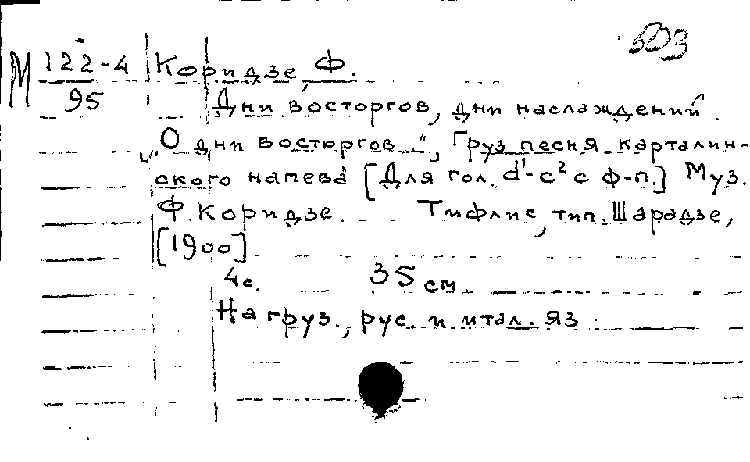 503
М 122-4 Коридзе, Ф.
95
Дни восторгов, дни наслаждений.
"О дни восторгов...", Груз песня карталин-
ского напева [Для гол. d¹-c² с ф-п.] Муз.
Ф. Коридзе. Тифлис, тип. Шарадзе,
[1900]
4 с. 35 см
На груз., рус. и итал. яз.